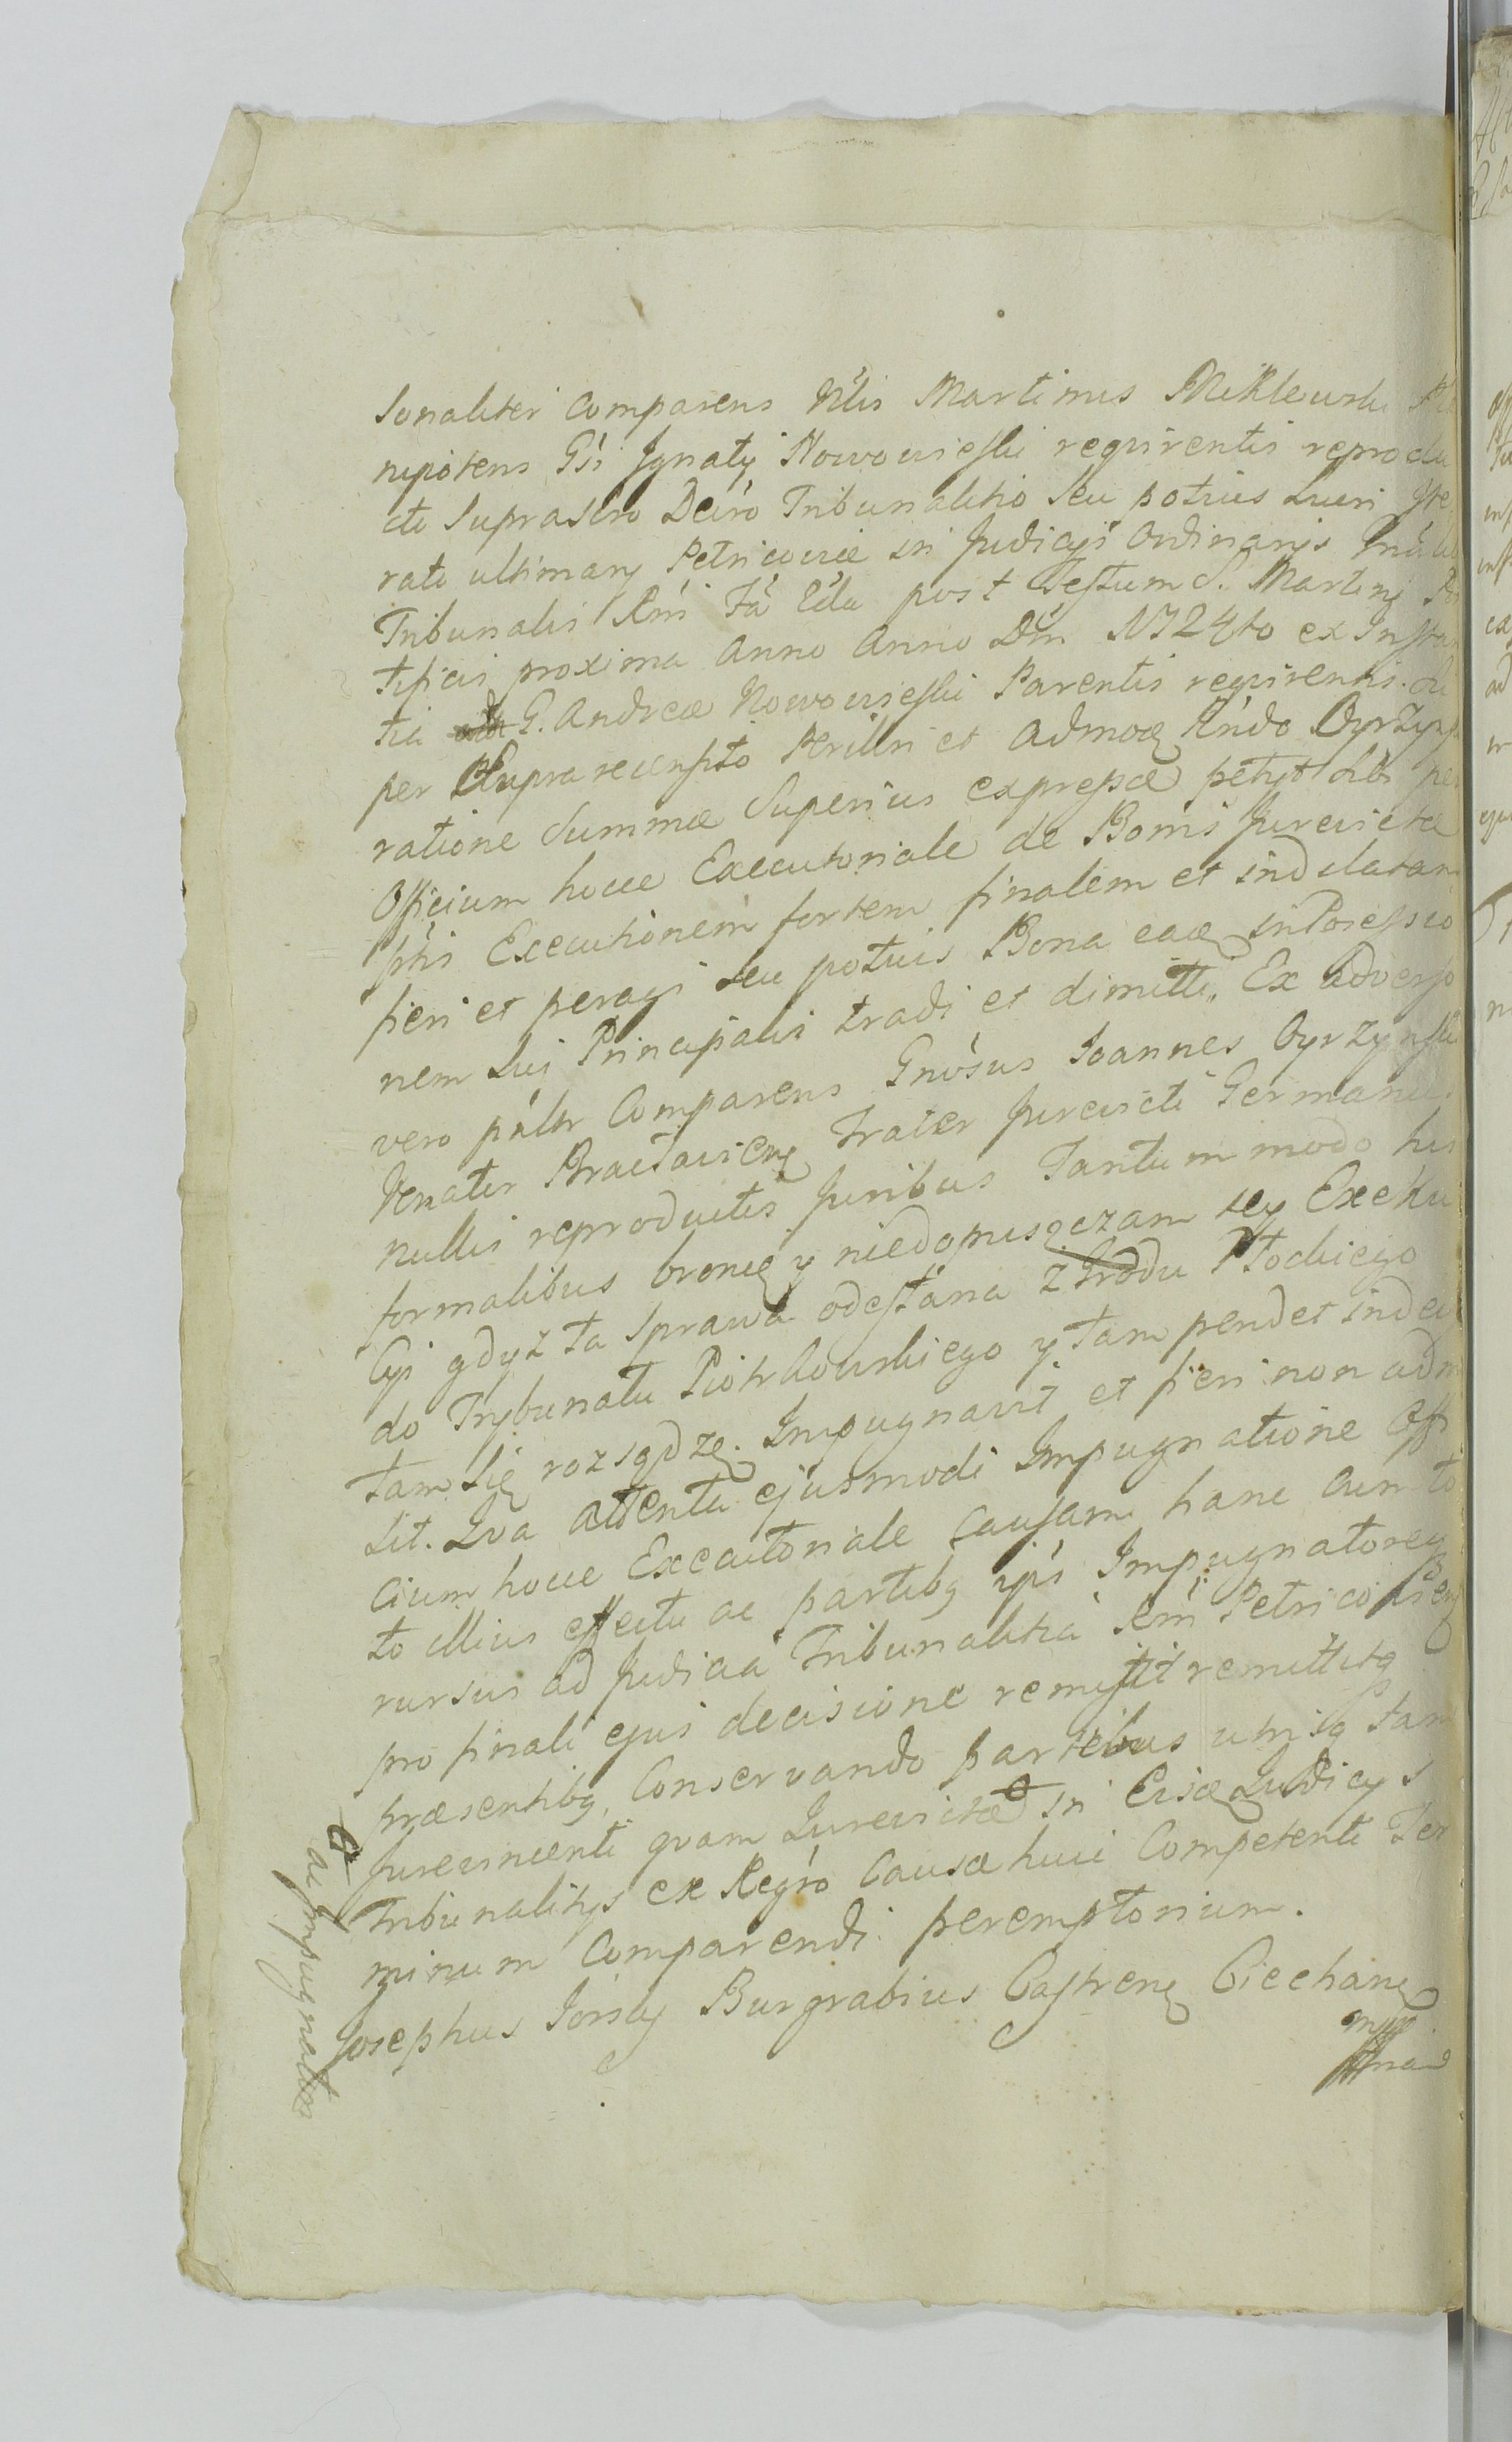 sonaliter comparens Nlis Martinus Miklewski Ple
nipotens Gsi Ignatij Nowowieyski requirentis reprodu
cto suprascro Decro Tribunalitio seu potius Lucri Ite
rati ultimary Petricoviæ in Judicijs Ordinarijs Gnalis
Tribunalis Rni Fa 2da post Festum S. Martini Pon
tificis proxima Anno Anno Dni 1724to ex Instan
tia G. Andreæ Nowowieyski Parentis requirentis. Su
per Suprarecensito Perillri et Admoq Rndo Oyrzyns
ratione Summæ Superius expressæ petijt Sibi per
Officium hocce Executoriale de Bonis Jurevictæ
ptis Executionem fortem finalem et indilatam
fieri et peragi seu potuis Bona eaq in Possessio
nem Sui Principalis tradi et dimitti. Ex Adverso
vero pnltr Comparens Gnosus Joannes Oyrzynski
Venator Braclavienę Frater Jurevicti Germanus
nullis reproductis Juribus Tantummodo his
formalibus bronię y niedopusączam tey Exeku
Cyi gdyż ta Sprawa odesłana z Grodu Płockiego
do Trybunału Piotrkowskiego y tam pendet indeci
tam się rozsądzę. Impugnavit et fieri non admi
sit. Qva attenta ejusmodi Impugnatione Offi
cium hocce Executoriale Causam hanc cum to
to illius effectu ac partibq ipś Impugnatoreq
rursus ad Judicia Tribunalitia Rni Petricovienę
pro finali ejus decisione remisit remittitq
præsentibq, Conservando partibus utrisq tam
Jurevincenti qvam Jurevictæ in Eisdę Judicijs
Tribunalitijs ex Regro Causæ huic Competenti Ter
minum Comparendi peremptorium.
Josephus Burgrabius Castrenę Ciechanę
mpp
ac Impugnatori